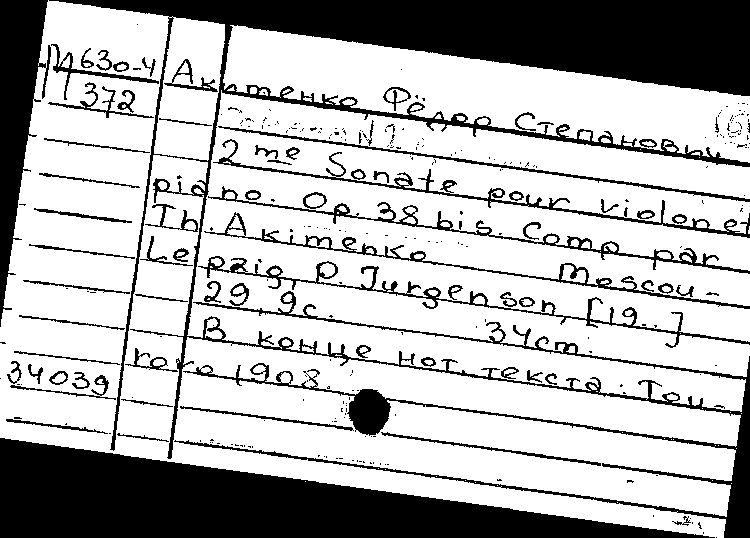 М 630-4
372
Акименко, Фёдор Степанович
2 me Sonate pour violon et
piano. Op. 38 bis. Comp par
Th. Akimenko Moscou-
Leipzig, P. Jurgenson, [19..]
29, 9c. 34cm.
В конце нот. текста: Tou-
roko 1908.
34039